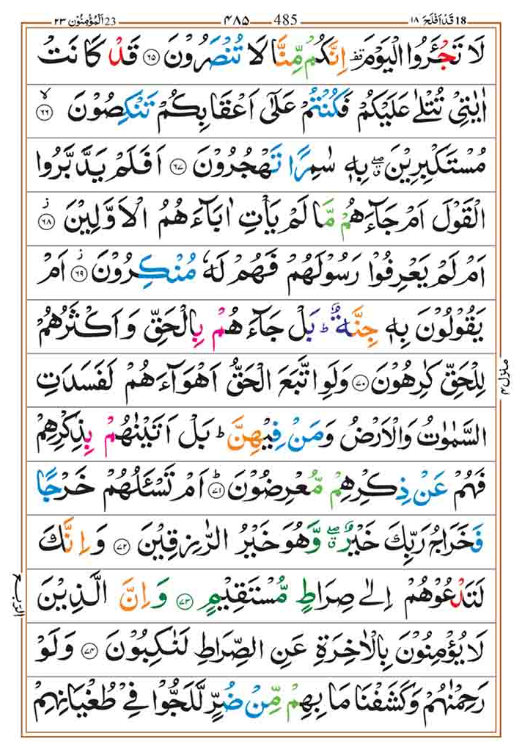 18 قَدْ اَفْلَحَ ١٨ ۴۸۵ 485 23 اَلْمُؤْمِنُوْن ٢٣
لَا تَجْـَٔرُوا الْيَوْمَ ۫ اِنَّكُمْ مِّنَّا لَا تُنْصَرُوْنَ ۝٦٥ قَدْ كَانَتْ
اٰيٰتِيْ تُتْلٰى عَلَيْكُمْ فَكُنْتُمْ عَلٰٓى اَعْقَابِكُمْ تَنْكِصُوْنَ ۝٦٦ۙ
مُسْتَكْبِرِيْنَ ۖۗ بِهٖ سٰمِرًا تَهْجُرُوْنَ ۝٦٧ اَفَلَمْ يَدَّبَّرُوا
الْقَوْلَ اَمْ جَآءَهُمْ مَّا لَمْ يَاْتِ اٰبَآءَهُمُ الْاَوَّلِيْنَ ۝٦٨ۚ
اَمْ لَمْ يَعْرِفُوْا رَسُوْلَهُمْ فَهُمْ لَهٗ مُنْكِرُوْنَ ۝٦٩ۚ اَمْ
يَقُوْلُوْنَ بِهٖ جِنَّةٌ ؕ بَلْ جَآءَهُمْ بِالْحَقِّ وَاَكْثَرُهُمْ
لِلْحَقِّ كٰرِهُوْنَ ۝٧٠ وَلَوِ اتَّبَعَ الْحَقُّ اَهْوَآءَهُمْ لَفَسَدَتِ
السَّمٰوٰتُ وَالْاَرْضُ وَمَنْ فِيْهِنَّ ؕ بَلْ اَتَيْنٰهُمْ بِذِكْرِهِمْ
فَهُمْ عَنْ ذِكْرِهِمْ مُّعْرِضُوْنَ ۝٧١ؕ اَمْ تَسْـَٔلُهُمْ خَرْجًا
فَخَرَاجُ رَبِّكَ خَيْرٌ ۖۗ وَّهُوَ خَيْرُ الرّٰزِقِيْنَ ۝٧٢ وَاِنَّكَ
لَتَدْعُوْهُمْ اِلٰى صِرَاطٍ مُّسْتَقِيْمٍ ۝٧٣ وَاِنَّ الَّذِيْنَ
لَا يُؤْمِنُوْنَ بِالْاٰخِرَةِ عَنِ الصِّرَاطِ لَنٰكِبُوْنَ ۝٧٤ وَلَوْ
رَحِمْنٰهُمْ وَكَشَفْنَا مَا بِهِمْ مِّنْ ضُرٍّ لَّلَجُّوْا فِيْ طُغْيَانِهِمْ
منزل ۴
الربع